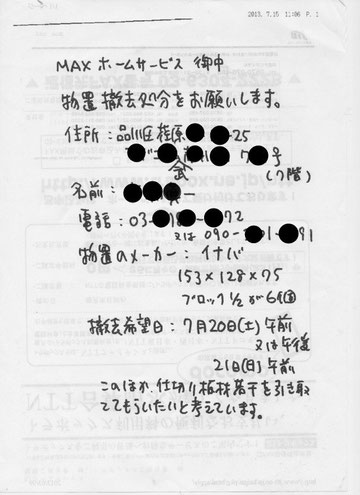 2013. 7.15 11:06 P. 1
MAX ホームサービス 御中
物置 撤去処分をお願いします。
住所：品川区荏原●-●-25
武
7●号
(7階)
名前：●●●一
電話：03-●1●●-●●72
又は 090-●●01-●●91
物置のメーカー：イナバ
153×128×75
ブロック1/2が6個
撤去希望日：7月20日(土)午前
又は午後
21日(日)午前
このほか、仕切り植林若干を引き取
ってもらいたいと考えています。